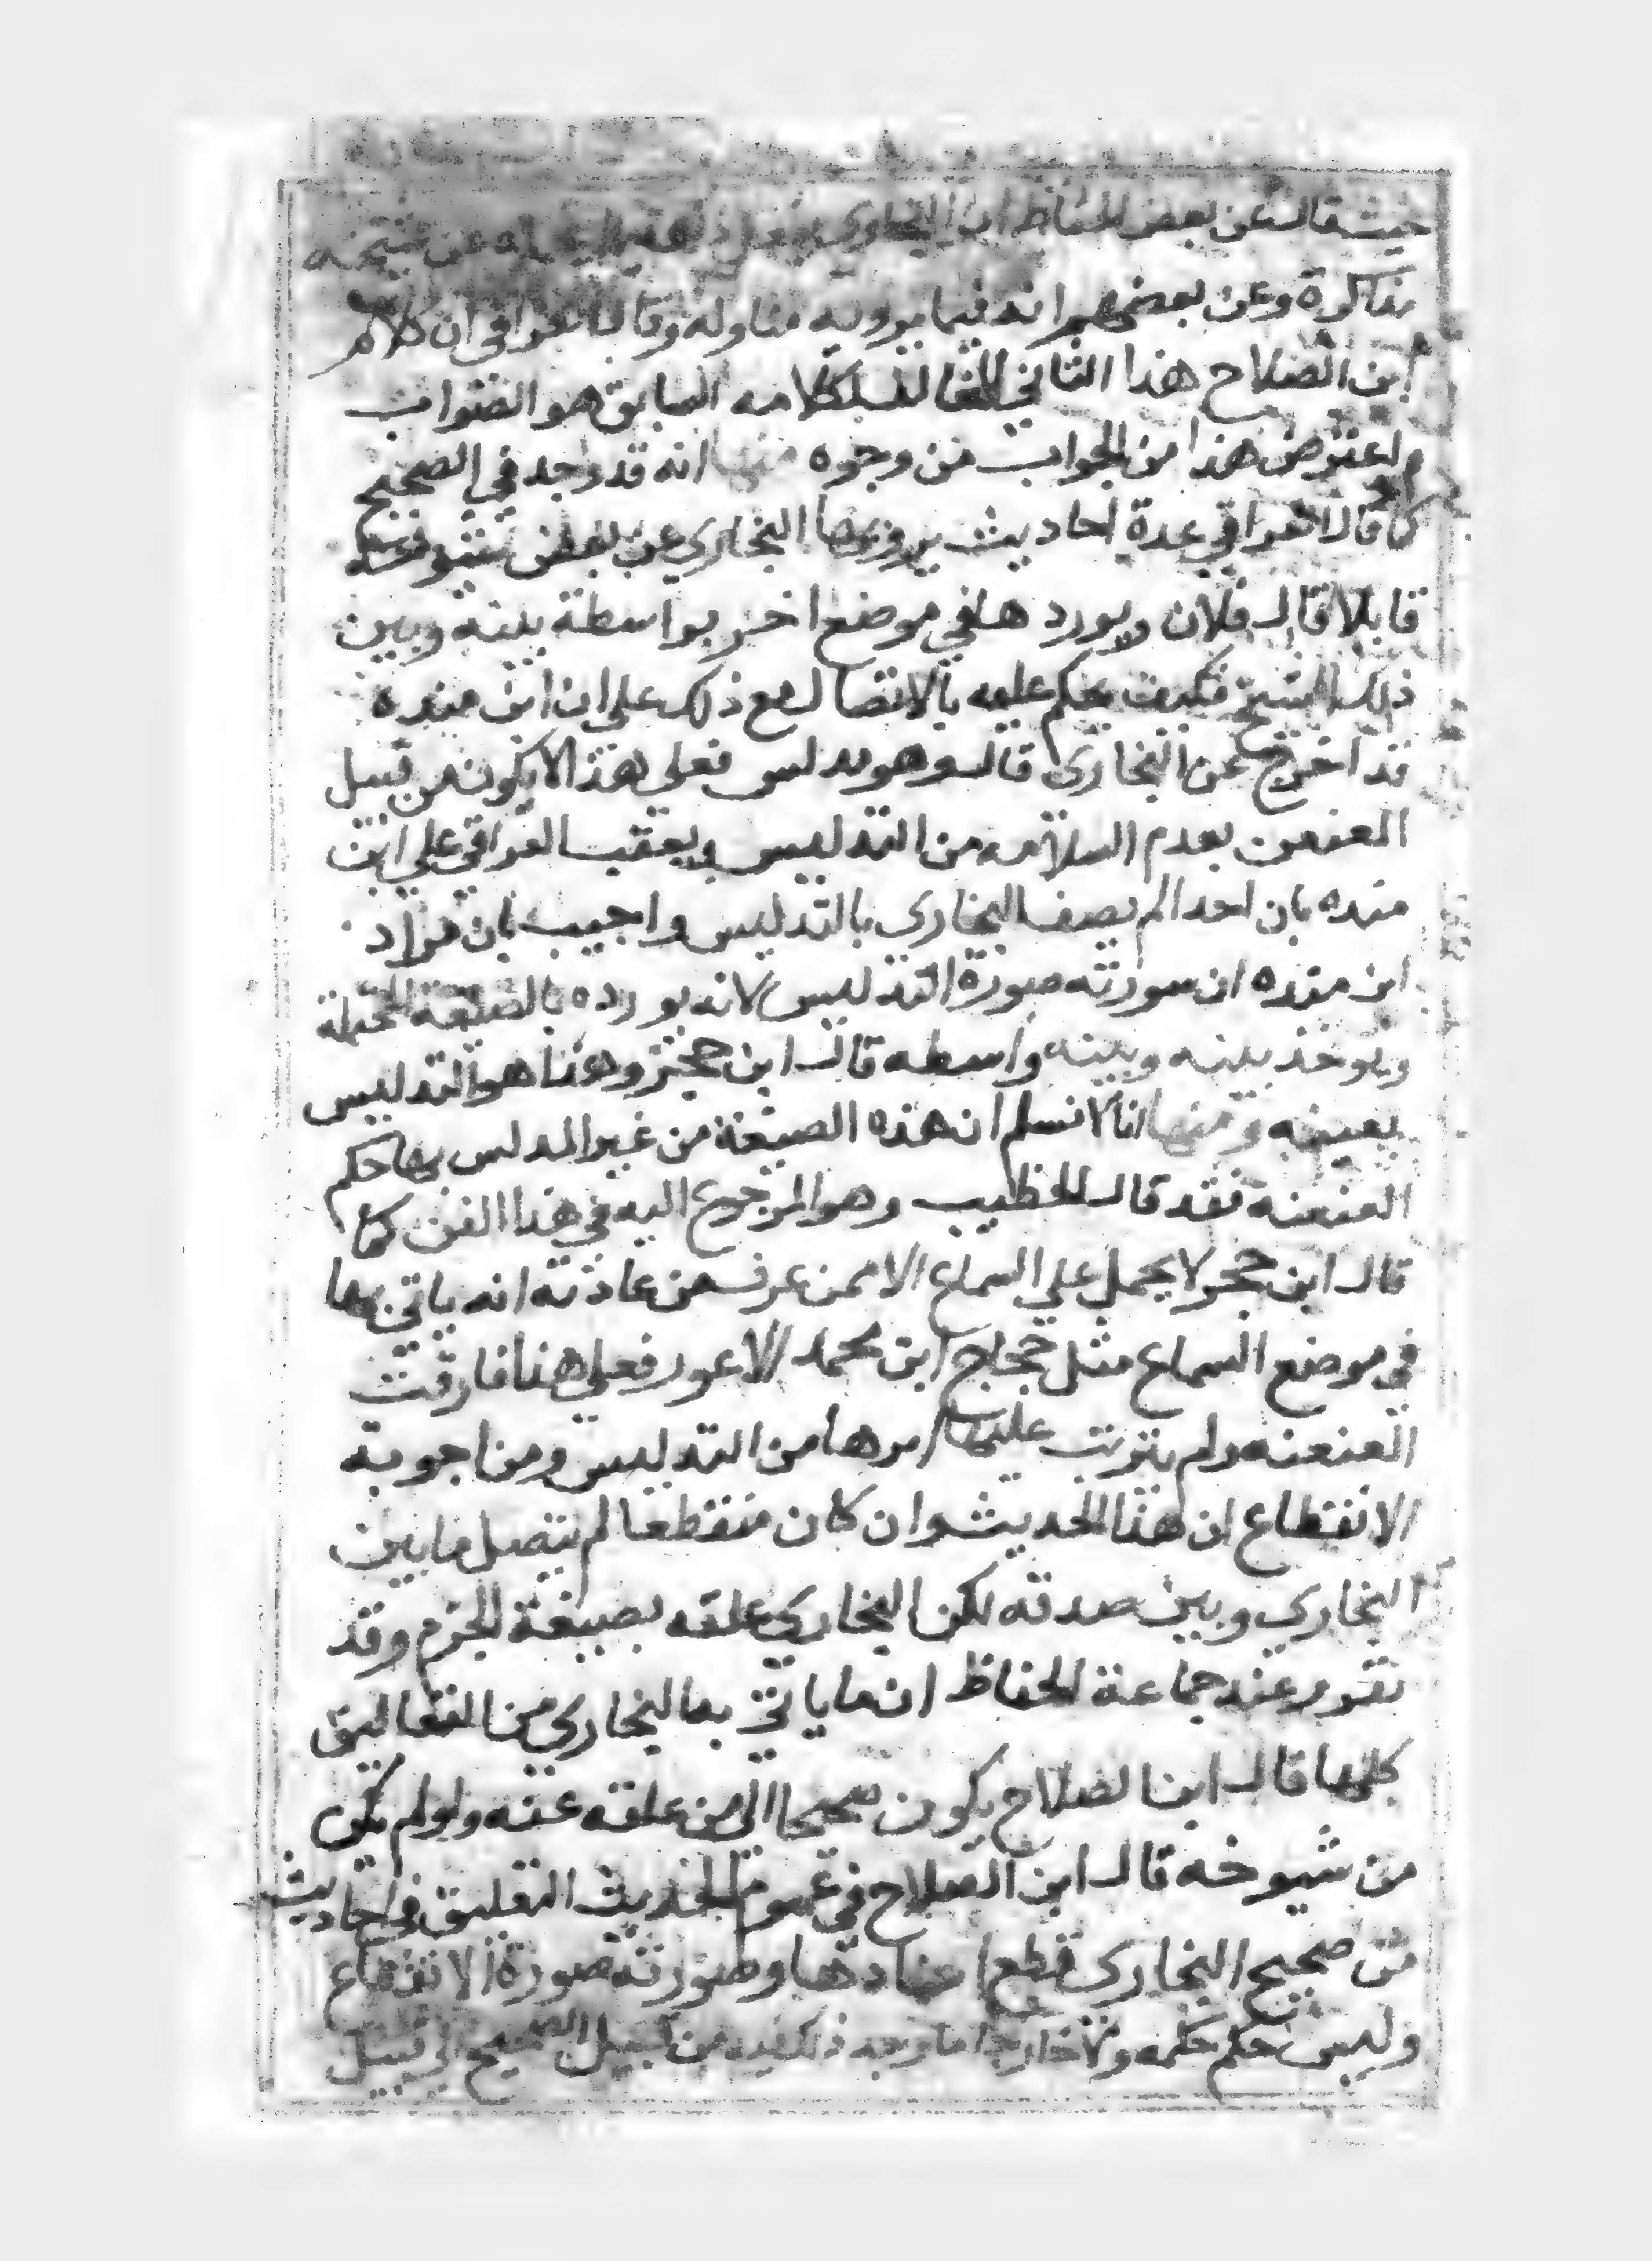 حيث قال عن بعض الحفاظ ان البخاري يفعل ذلك فيما عن شيخه
مذاكرة وعن بعضهم انه فيما يرويه مناوله وقال العراقي ان كلام
ابن الصلاح هذا الثاني المخالف لكلامه السابق هو الصواب
واعترض هذا من الجواب من وجوه منها انه قد وجد في الصحيح
كما قال العراقي عدة احاديث يرويها البخاري عن بعض شيوخه
قايلا قال فلان ويوردها في موضع اخر بواسطة بينه وبين
ذلك الشيخ فكيف يحكم عليه بالاتصال مع ذلك على ان ابن منده
قد اخرج عن البخاري قال وهو مدلس فعلى هذا لا يكون من قبيل
العنعن بعدم السلامه من التدليس ويعقب العراقي على ابن
منده بان احدا لم يصف البخاري بالتدليس واجيب بان مراد
ابن منده ان سورته صورة التدليس لانه يورده بالصيغة المحتملة
ويوخذ بينه وبينه واسطه قال ابن حجر وهذا هو التدليس
بعينه ومنها انا لا نسلم ان هذه الصيغة من غير المدلس لها حكم
العنعنه فقد قال الخطيب وهو المرجوع اليه في هذا الفن كما
قال ابن حجر لا يحمل على السماع الا ممن عرف من عادته انه ياتي بها
في موضع السماع مثل حجاج ابن محمد الاعور فعلى هذا فارقت
العنعنه ولم يترتب عليها امرها من التدليس ومن اجوبة
الانقطاع ان هذا الحديث وان كان منقطعا لم يتصل ما بين
البخاري وبين صدقه لكن البخاري علقه بصيغة الجزم وقد
تقرر عند جماعة الحفاظ ان ما ياتي به البخاري من التعاليق
كلها قال ابن الصلاح يكون صحيحا الى من علقه عنه ولو لم يكن
من شيوخه قال ابن الصلاح في علوم الحديث التعليق في احاديث
من صحيح البخاري قطع اسنادها وصورته صورة الانقطاع
وليس حكمه حكمه ولا خارجا ما وجد ذلك فيه من قبيل الصحيح الى قبيل